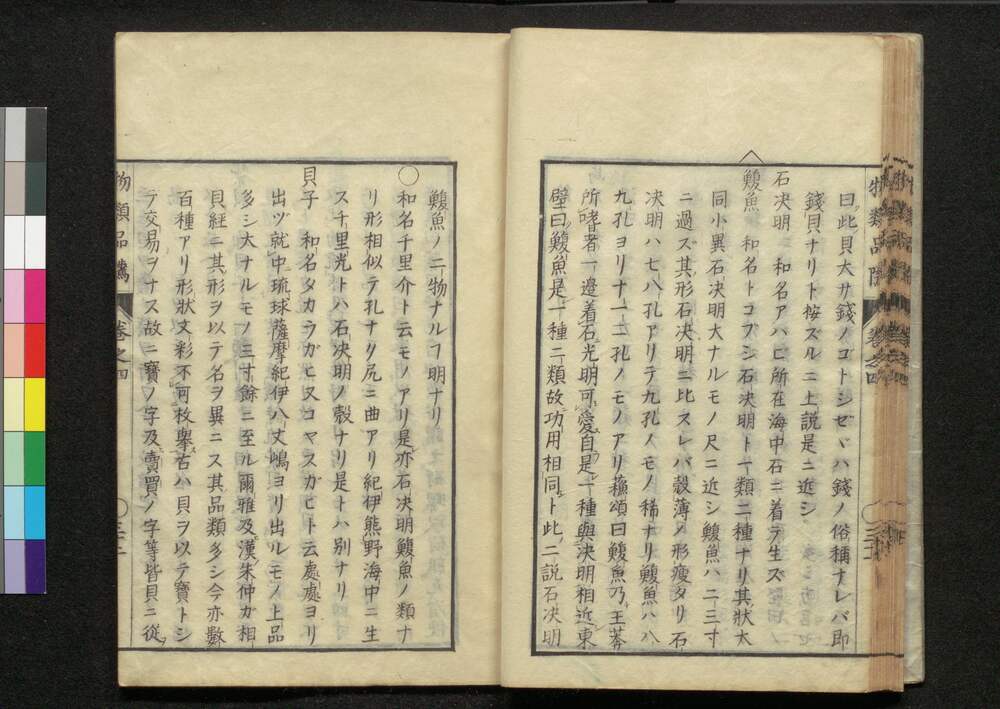 曰此貝大サ錢ノコトシゼヾハ錢ノ俗稱ナレバ即
錢貝ナリト按ズルニ上説是ニ近シ
石决明 和名アハビ所在海中石ニ着テ生ズ
鰒魚 和名トコブシ石决明ト一類二種ナリ其狀大
同小異石决明大ナルモノ尺ニ近シ鰒魚ハ二三寸
ニ過ズ其形石决明ニ比スレバ殼薄ク形瘦タリ石
决明ハ七八孔アリテ九孔ノモノ稀ナリ鰒魚ハ八
九孔ヨリ十一二孔ノモノアリ蘓頌曰鰒魚乃王莾
所嗜者一邉着石光明可愛自是一種與决明相近東
壁曰鰒魚是一種二類故功用相同ト此二説石决明
物類品隲 卷之四
鰒魚ノ二物ナルヿ明ナリ
〇和名千里介ト云モノアリ是亦石决明鰒魚ノ類ナ
リ形相似テ孔ナク尻ニ曲アリ紀伊熊野海中ニ生
ス千里光トハ石决明ノ殼ナリ是トハ別ナリ
貝子 和名タカラガヒスコヤスカヒト云處處ヨリ
出ヅ就中琉球薩摩紀伊八丈嶋ヨリ出ルモノ上品
多シ大ナルモノ三寸餘ニ至ル爾雅及漢朱仲ガ相
貝經ニ其形ヲ以テ名ヲ異ニス其品類多シ今亦數
百種アリ形狀文彩不可枚擧古ハ貝ヲ以テ寶トシ
テ交易ヲナス故ニ寶ノ字及賣買ノ字等皆貝ニ從
物類品隲 卷之四